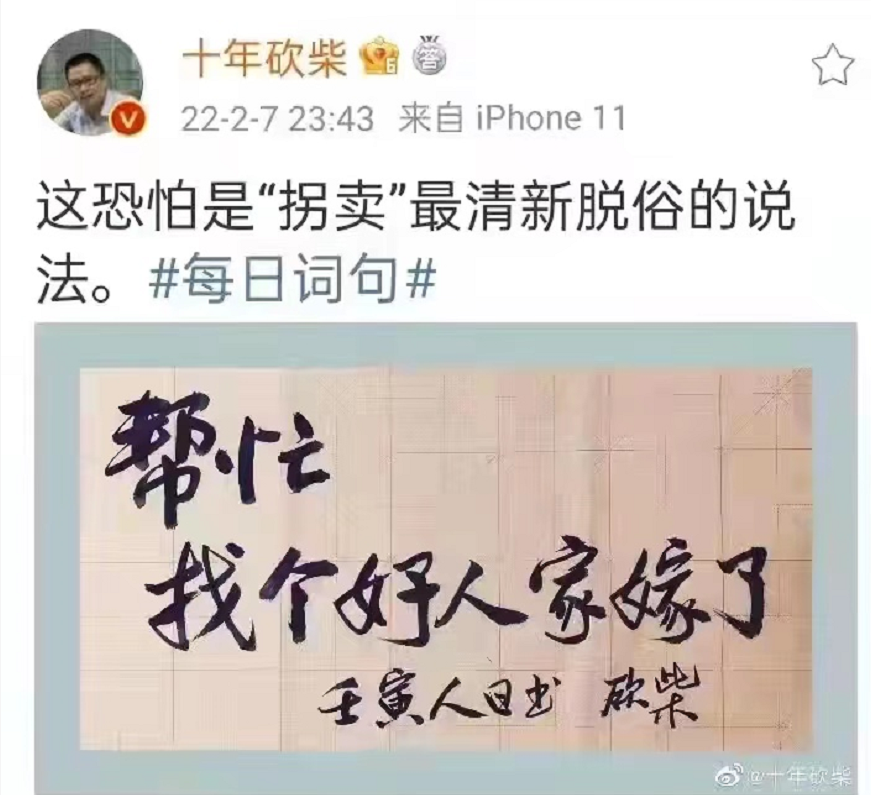 十年砍柴
22-2-7 23:43 来自 iPhone 11
这恐怕是“拐卖”最清新脱俗的说
法。#每日词句#
帮忙
找个好人家嫁了
壬寅人日书 砍柴
@十年砍柴